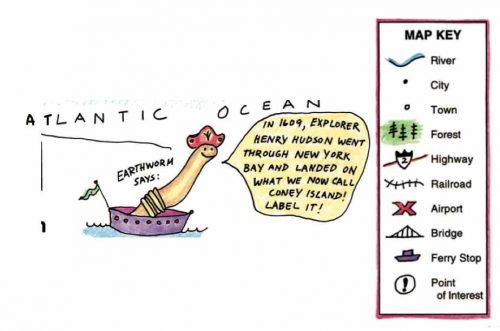 ATLANTIC OCEAN
EARTHWORM
SAYS:
IN 1609, EXPLORER
HENRY HUDSON WENT
THROUGH NEW YORK
BAY AND LANDED ON
WHAT WE NOW CALL
CONEY ISLAND!
LABEL IT!
MAP KEY
River
City
Town
Forest
2
Highway
Railroad
Airport
Bridge
Ferry Stop
!
Point
of Interest